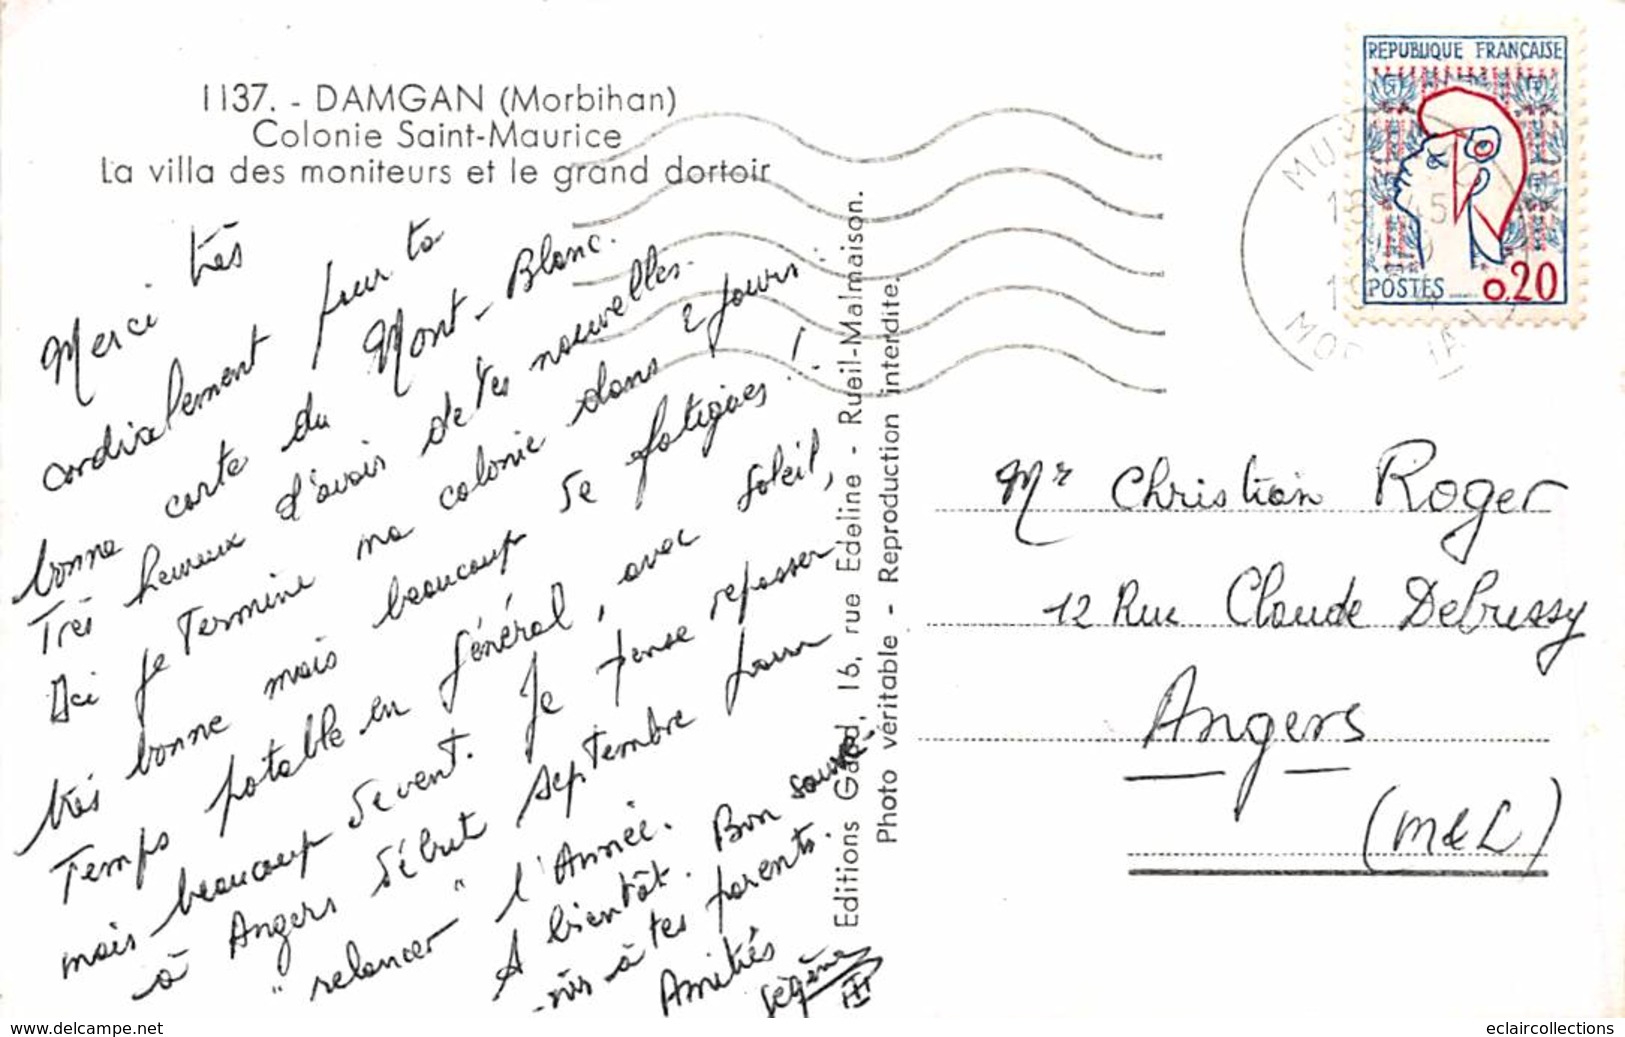 1137. - DAMGAN (Morbihan)
Colonie Saint-Maurice
La villa des moniteurs et le grand dortoir
Merci très
cordialement pour ta
bonne carte du Mont-Blanc.
Très heureux d'avoir de tes nouvelles.
Ici je termine ma colonie dans 2 jours :
très bonne mais beaucoup de fatigues !!!
Temps potable en général, avec soleil,
mais beaucoup de vent. Je pense repasser
à Angers début septembre pour
"relancer" l'Année.
A bientôt. Bon souve-
-nir à tes parents.
Amitiés
Editions Gaby, 16, rue Edeline - Rueil-Malmaison.
Photo véritable - Reproduction interdite.
REPUBLIQUE FRANÇAISE
POSTES 0.20
Mr Christian Roger
12 Rue Claude Debussy
Angers
(M&L)
www.delcampe.net
eclaircollections